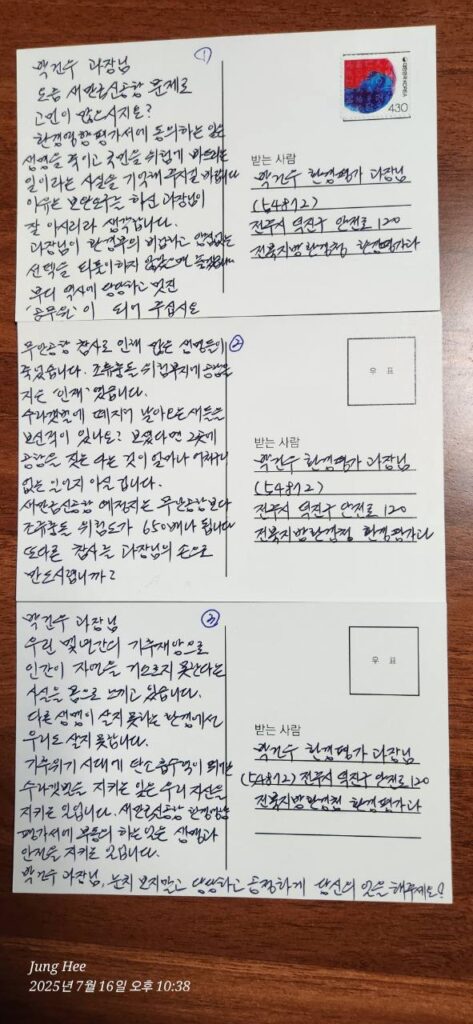 박진수 과장님 ①
요즘 새만금신공항 문제로
고민이 많으시지요?
환경영향평가서에 동의하는 일은
생명을 죽이고 국민을 위험에 빠뜨리는
일이라는 사실을 기억해 주시길 바랍니다
이유는 보완요구를 하신 과장님이
잘 아시리라 생각합니다.
과장님이 환경부의 비겁하고
선택을 되풀이하지 않았으면 좋겠습니다
부디 역사에 당당하고 멋진
'공무원'이 되어 주십시오
대한민국 KOREA
430
받는 사람
박진수 환경평가 과장님
(54872)
전주시 덕진구 안전로 120
전북지방환경청 환경평가과
무안공항 참사로 인해 많은 생명들이 ②
죽었습니다. 조류충돌 위험부지에 공항을
지은 '인재'였습니다.
수라갯벌에 떼지어 날아오는 새들을
보신적이 있나요? 보셨다면 그곳에
공항을 짓는다는 것이 얼마나 어처구니
없는 일인지 아실겁니다.
새만금신공항 예정지는 무안공항보다
조류충돌 위험도가 650배나 됩니다
또다른 참사를 과장님의 손으로
만드시렵니까?
우 표
받는 사람
박진수 환경평가 과장님
(54872)
전주시 덕진구 안전로 120
전북지방환경청 환경평가과
박진수 과장님 ③
우린 몇년간의 기후재앙으로
인간이 자연을 거스르지 못한다는
사실을 몸으로 느끼고 있습니다.
다른 생명이 살지 못하는 환경에서
우리도 살지 못합니다.
기후위기 시대에 탄소 흡수원이 되는
수라갯벌을 지키는 일은 우리 자신을
지키는 일입니다. 새만금신공항 환경영향
평가서에 부동의 하는 일은 생명과
안전을 지키는 일입니다.
박진수 과장님, 눈치 보지말고 당당하고 공정하게 당신의 일을 해주세요!
우 표
받는 사람
박진수 환경평가 과장님
(54872) 전주시 덕진구 안전로 120
전북지방환경청 환경평가과
Jung Hee
2025년 7월 16일 오후 10:38